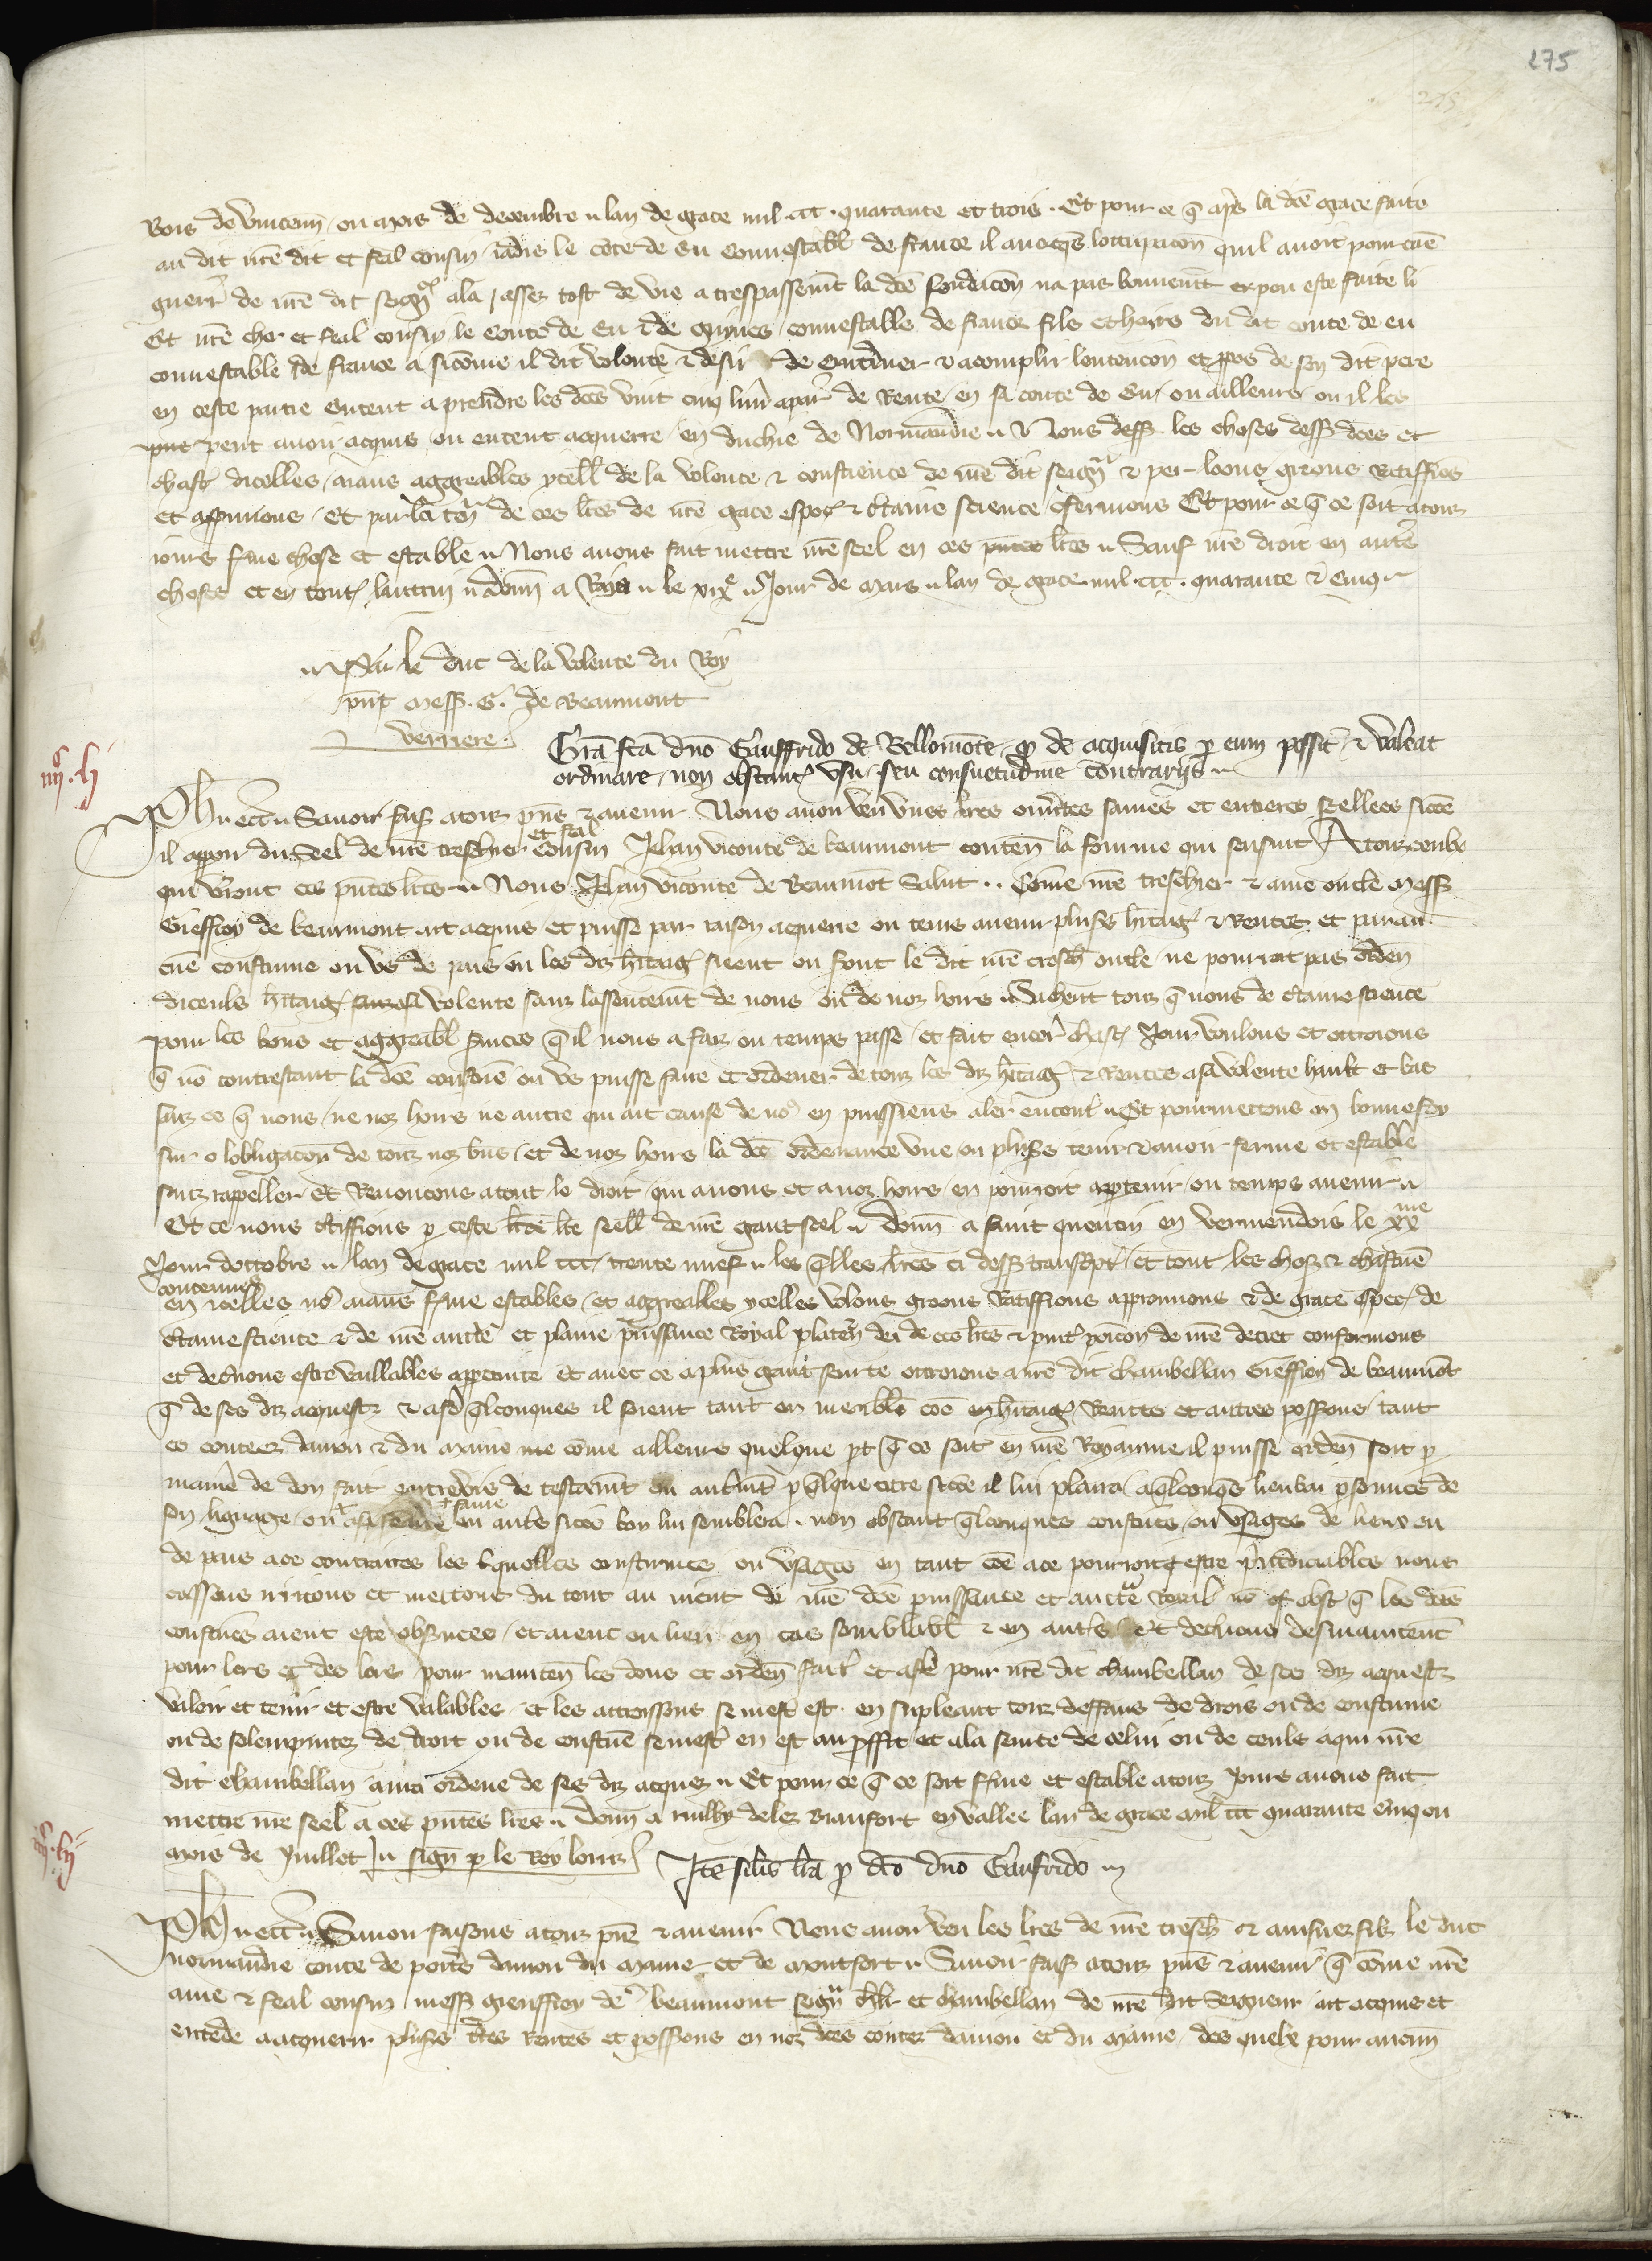 275
275
Bois de Vincenn ou mois de decembre lan de grace mil ccc quarante et trois. Et pour ce q̄ aprs la dc̄e grace faite
au dit nr̄e dit et feal cousin iadis le cōte de Eu Connestabl de france il auoqs loccupacōn quil auoit pour cāe
guerr̄ de nr̄e dit seignr ala / assez tost de vie a trespassemt la dc̄e fondacōn na pas bonnemt expou este faite li
Et nr̄e cher et feal cousin le Conte de Eu & de Guynes connestable de france fils et hoirs du dit conte de eu
connestable de france a sicōme il dit volente & desir de continuer & acomplir lentencōn et ppos de son dit pere
en ceste partie entent a prendre les dc̄es vint cinq liur̄ apar̄ de Rente en sa conte de Eu / ou ailleurs ou il les
peut auoir acquis ou entent acquerre en duchie de Normandie Nous dess les choses dess dc̄es et
chasc̄ dicelles aians aggreables ycell de la volente & conscience de nr̄e dit seignr & per loons greons Ratiffios
et appnuons Et par la tenr̄ de ces lr̄es de nr̄e grace espec & c̄taine science cōfermons Et pour ce q̄ ce soit a touz
iours ferme chose et estable Nous auons fait mettre nr̄e seel en ces pn̄tes lr̄es Sauf nr̄e droit en autr̄s
choses et en tout lautrui donn a le xix jour de Mars lan de grace mil ccc quarante & cinq
Par le duc de la volente du Roy
pn̄t mess. G. de Beaumont
Verriere
Grā fcā dn̄o Gauffrido de Bellomōte q de acquisitis p eum possit & valeat
ordinare non obstant vsu seu consuetudine contrarijs
Ph ec̄ Sauoir fais a touz pn̄s & auenir Nous auon veu vnes lr̄es ouūtes saines et entieres seellees sicōe
il appar du Seel de nr̄e treschier et feal cousin Jehan viconte de beaumont conten̄ la forme qui sensuit A touz ceulx
qui vrront ces pn̄tes lr̄es Nous Jehan Viconte de Beaumōt Salut Cōme nr̄e treschier & ame oncle Mess
Gieffroy de beaumont ait acquis et puisse par raison acquerre ou tems auenir plus̄s hītag & Rentes et par au
cuē coustume ou vs de pais ou les diz hītag sieent ou sont le dit nr̄e tresch̄ oncle ne pourroit pas orden
diceuls hītag volente sanz lassentemt de nous ou de noz hoirs Sachent touz q̄ nous de c̄taine science
pour les bons et aggreabl seruices q̄ il nous a faiz ou temps passe et fait encor chasc Jour voulons et ottroions
q̄ nō contrestant la dc̄e coustuē ou vs puisse faire et ordener de touz les diz hītag & Rentes a sa volente hault et bas
sanz ce q̄ nous ne noz hoirs ne autre qui ait cause de nos en puissiens aler encontr̄ Et pourmettons en bonne foy
sur o lobligacōn de touz noz biēs et de noz hoirs la dc̄e ordenance vne ou plus̄s tenir & auoir ferme et estable
sanz rappeller Et Renoncons a tout le droit qui a nous et a noz hoirs en pourroit apptenir ou temps auenir
Et ce nous c̄tiffions p ceste lr̄e seell de nr̄e grant seel donn a saint quentin en vermendois le xx me
Jour doctobre lan de grace mil ccc trente nuef les q̄lles lr̄es ci dess transcpt et tout les chos & chascuē
contenues
en icelles nos aians ferme estables et aggreables ycelles volons greons Ratiffions approuuons & de grace espec de
c̄taine science & de nr̄e auctē et plaine puissance Royal p la ten̄ de ces lr̄es & pn̄t de nr̄e decret confermons
et decernons estre vaillables Et auec ce a plus grant seurte ottroions a nr̄e dit chambellan Gieffroy de beaumōt
q̄ de ses diz acquestz q̄lconques il soient tant en meubles cōe en hītag Rentes et autres possions tant
es contees danion & du Maine cōme ailleurs quelque pt q̄ ce soit en nr̄e Royaume il puisse orden soit p
man̄e de don fait entre vis de testamt ou autremt p q̄lque titre sicōe il lui plaira a q̄lconqs psonnes de
son lignage ou a sa feme ou autr̄s sicōe bon lui semblera non obstant q̄lconques coustūes ou vsages de lieux ou
de pais a ce contraires les quelles coustumes ou vsages en tant cōe a ce pourroient estre preiudiciables nous
cassons irritons et mettons du tout au nient de nr̄e dc̄e puissance et auctē Roial nō obst q̄ les dc̄es
coustūes aient este obsruees et aient eu lieu en cas semblabl & en autrs Et decernons desmaintent
pour lors et des lors pour mainten les dons et orden fait et a fē pour nr̄e dit chambellan de ses diz acquestz
valoir et tenir et estre valables et les auctorisons se mest est en supleant touz deffaus de drois ou de coustume
ou de solempnitez de droit ou de coustuē se mest en est au pffit et a la seurte de celui ou de ceuls a qui nr̄e
dit chambellan aura ordene de ses diz acquez Et pour ce q̄ ce soit ferme et estable a touz jours auons fait
mettre nr̄e seel a ces pn̄tes lr̄es donn a milly delez Biaufort en vallee lan de grace mil ccc quarante cinq ou
mois de Juillet sign p le Roy Lorriz
Itē silis lrā p dcō dn̄o Gaufrido
Ph ec̄ Sauoir faisons a touz pn̄s & auenir Nous auons veu les lr̄es de nr̄e tresch̄ & ainsnez filz le duc
normandie conte de poitrs danion du maine et de montfort Sauoir fais a touz pn̄s & auenir q̄ cōme nr̄e
ame & feal cousin mess gieuffroy de beaumont seignr chlr et chambellan de nr̄e dit Seigneur ait acquis et
entēde a acquerir plus̄s tr̄es Rentes et possions en noz dc̄es contez danion et du maine des quelx pour aucun